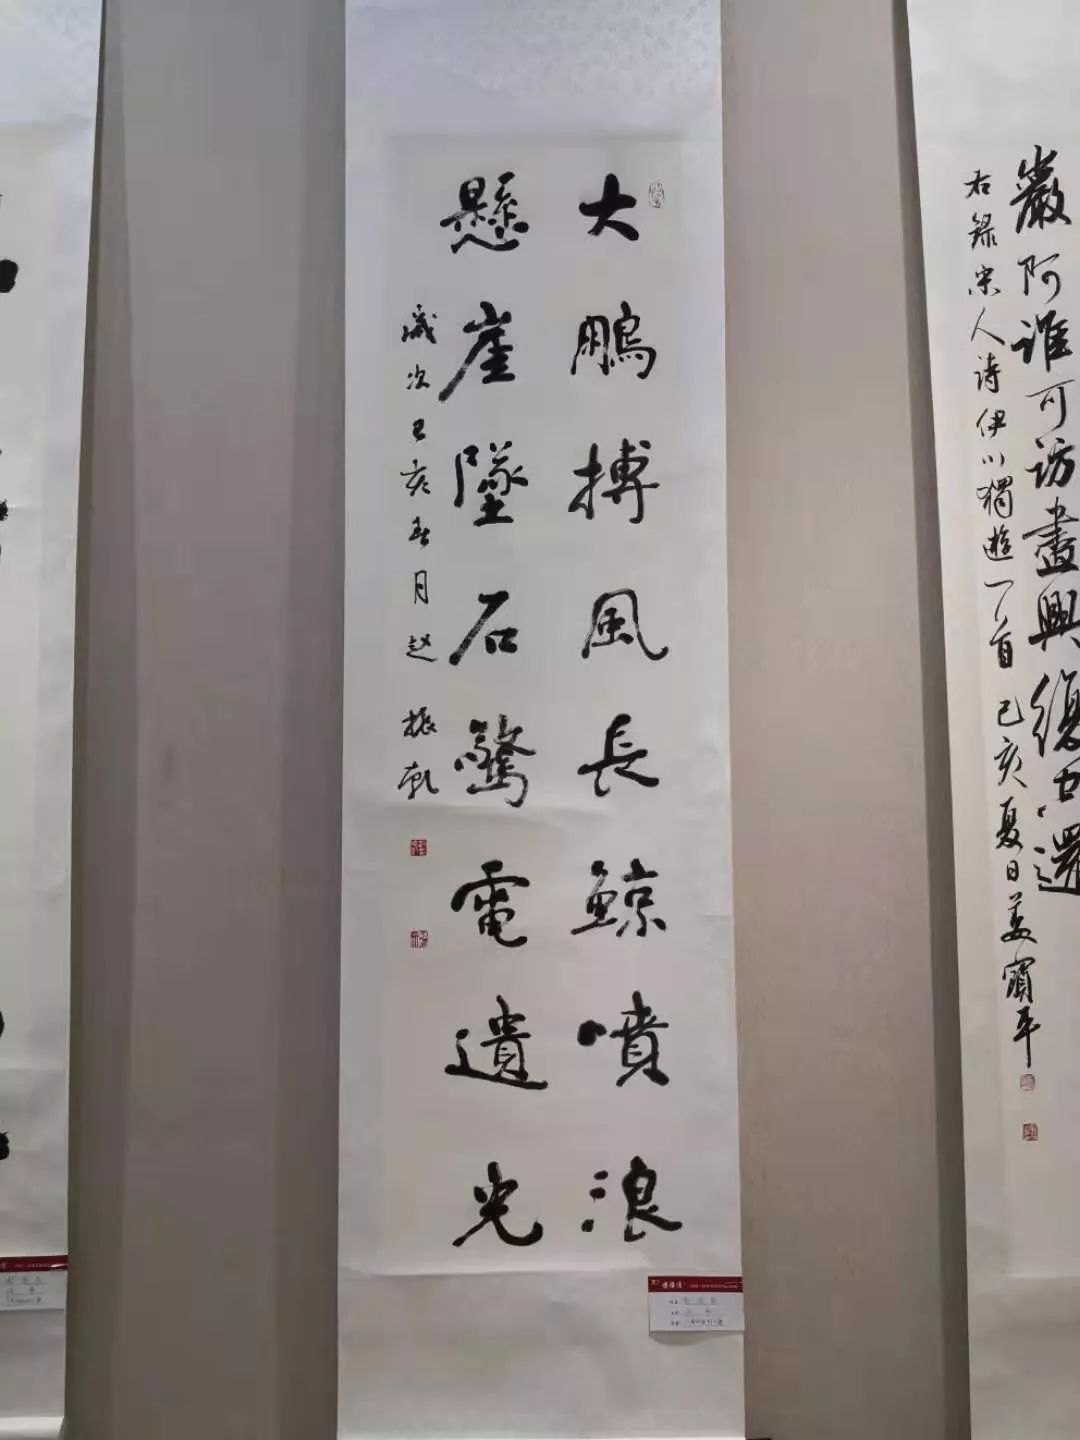 巖阿誰可訪盡興復空還
右錄宋人诗伊川獨遊一首
己亥夏日姜寶平
大鵬搏風長鯨噴浪
懸崖墜石驚電遺光
歲次己亥春月赵振乾